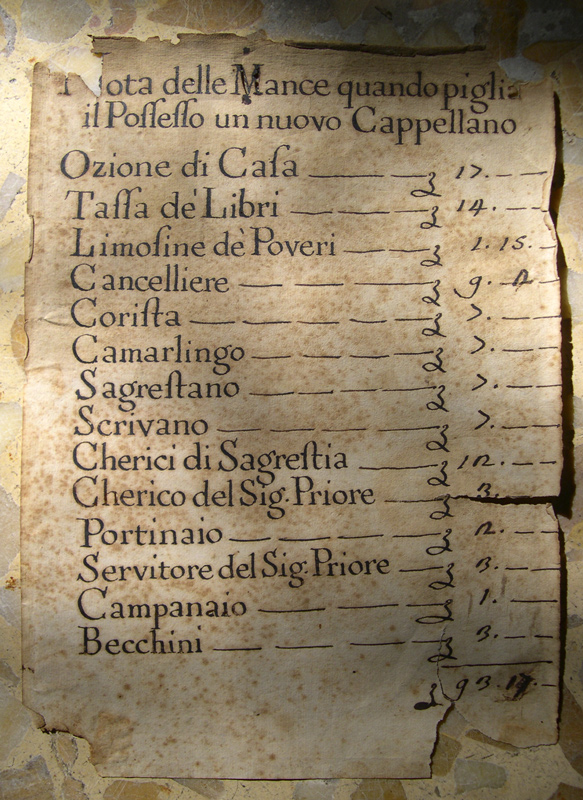 Nota delle Mance quando piglia
il Poſſeſſo un nuovo Cappellano
Ozione di Caſa — — £ 17. — —
Taſſa de' Libri — — — £ 14. — —
Limoſine de' Poveri — — £ 1. 15. —
Cancelliere — — — £ 9. 2 —
Coriſta — — — — £ 7. —
Camarlingo — — — £ 7. —
Sagreſtano — — — £ 7. —
Scrivano — — — £ 7. —
Cherici di Sagreſtia — — £ 12. —
Cherico del Sig: Priore — £ 3. —
Portinaio — — — £ 2. —
Servitore del Sig: Priore — £ 3. —
Campanaio — — — £ 1. —
Becchini — — — £ 3. —
£ 93. 17. —